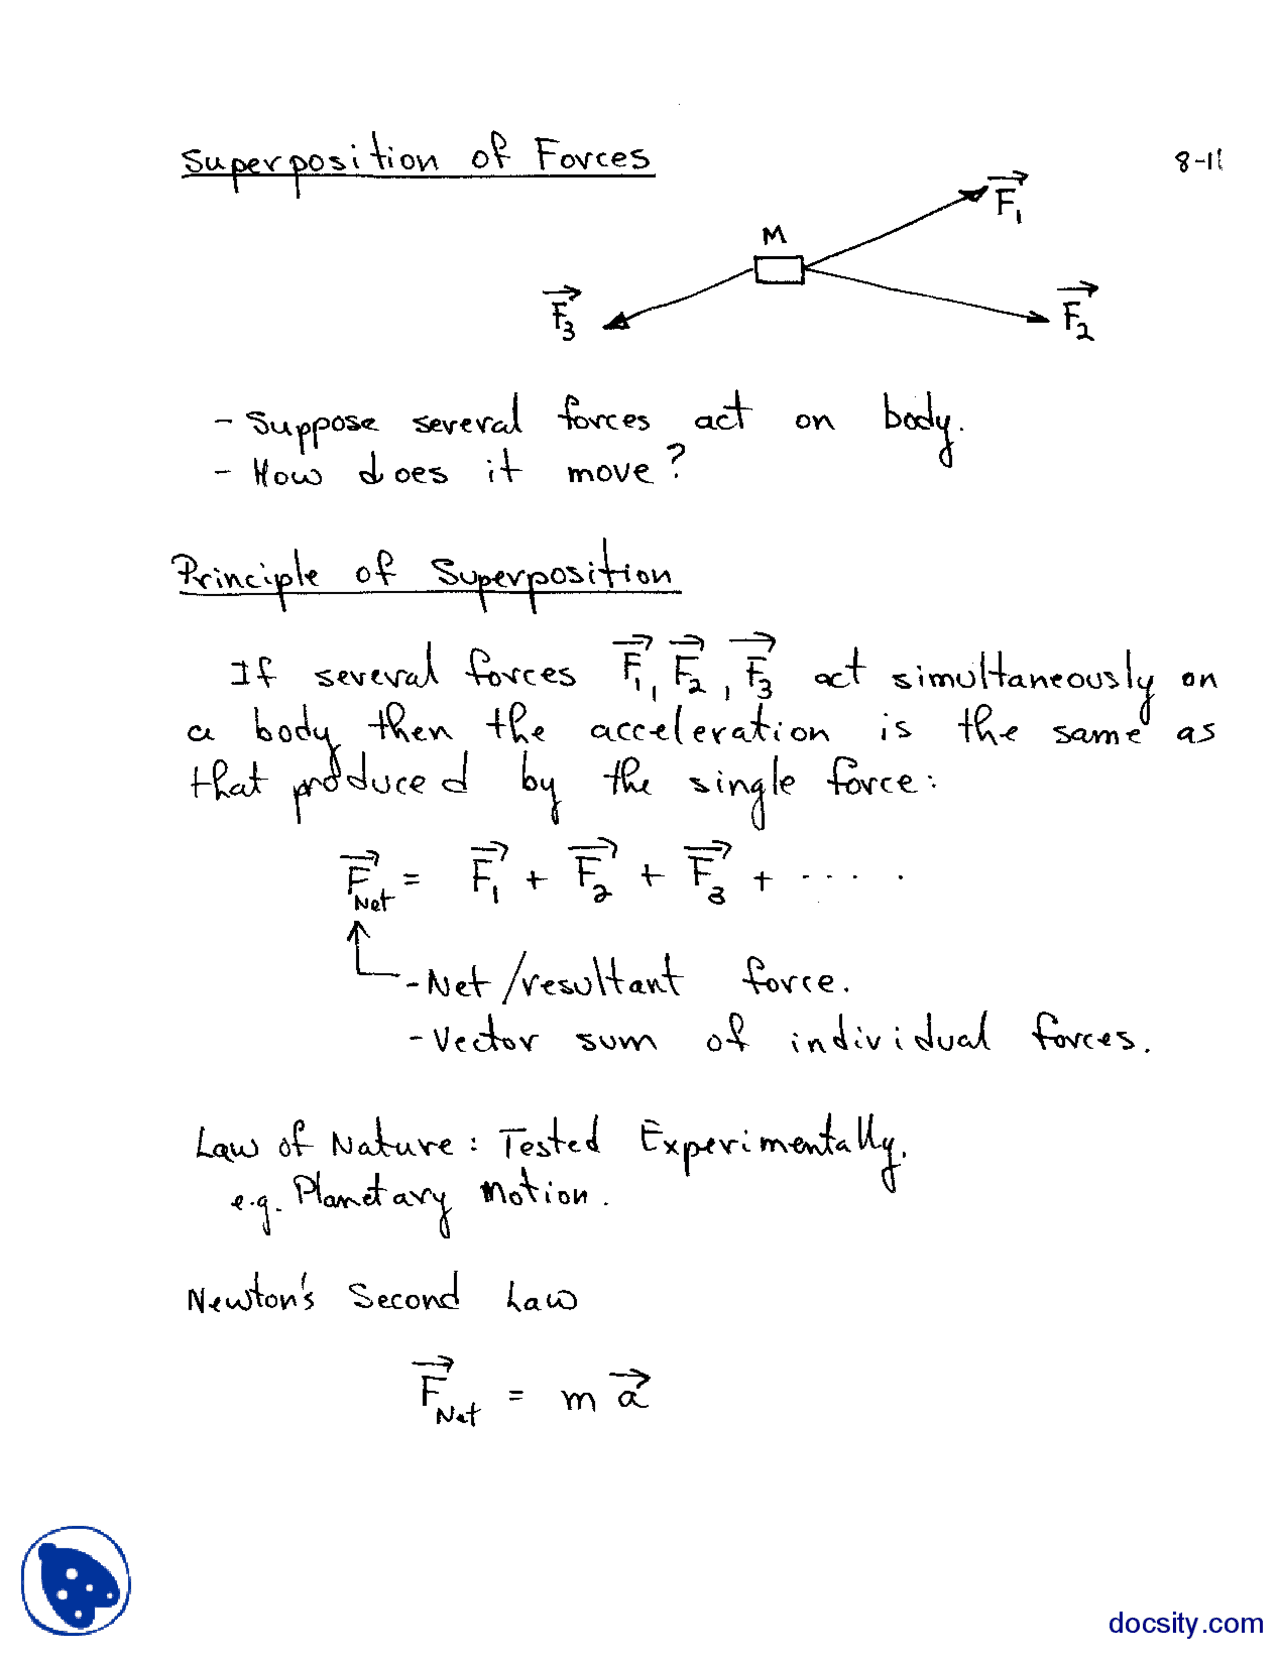 Superposition of Forces
8-11
M
F₁
F₂
F₃
- Suppose several forces act on body.
- How does it move?
Principle of Superposition
If several forces F₁, F₂, F₃ act simultaneously on
a body then the acceleration is the same as
that produced by the single force:
F⃗Net = F⃗₁ + F⃗₂ + F⃗₃ + .....
- Net/resultant force.
- Vector sum of individual forces.
Law of Nature: Tested Experimentally.
e.g. Planetary Motion.
Newton's Second Law
F⃗Net = m a⃗
docsity.com